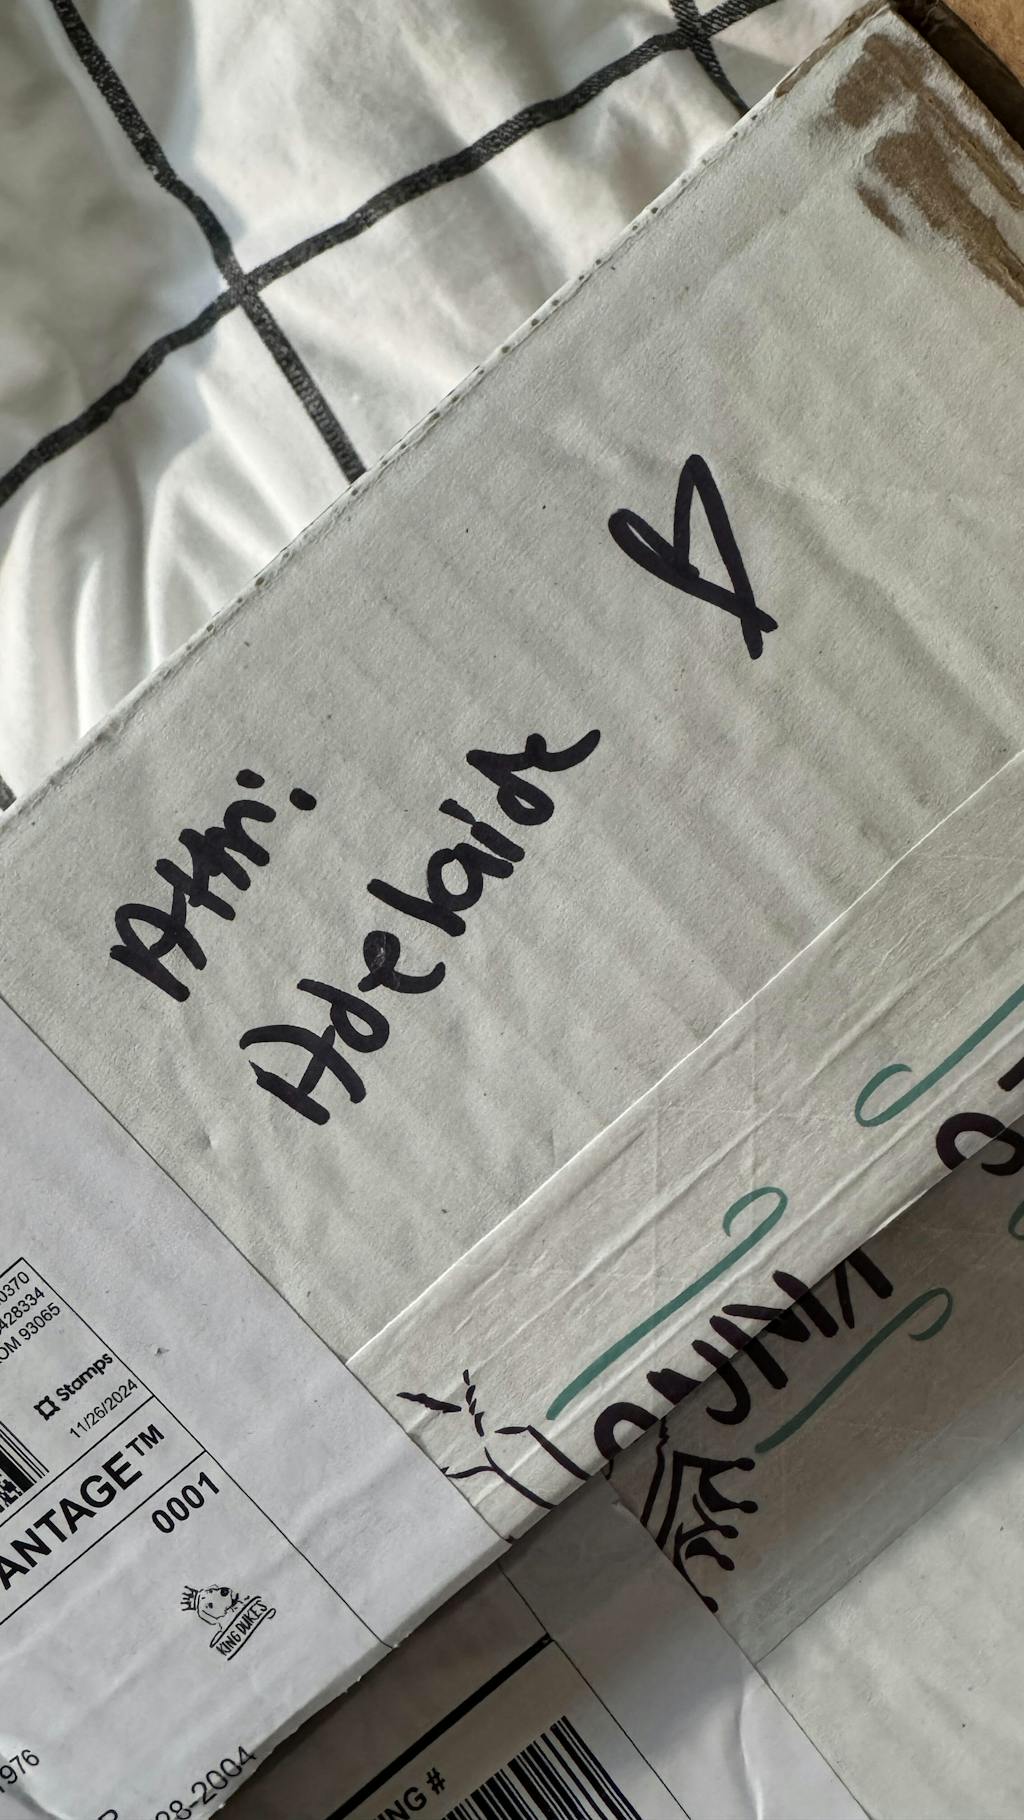 Attn:
Adelaide
0370
428334
OM 93065
Stamps
11/26/2024
ANTAGE™
0001
KING DUKES
1976
28-2004
ING #